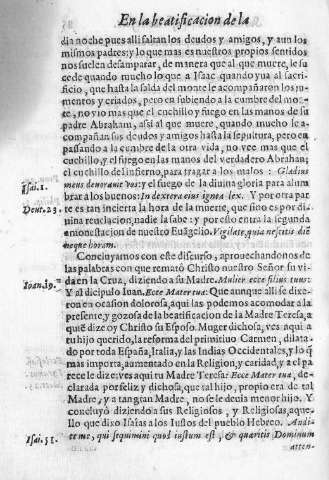 En la beatificacion de la
dia noche pues alli faltan los deudos y amigos, y aun los
mismos padres: y lo que mas es nuestros propios sentidos
nos suelen desamparar, de manera que al que muere, le su
cede quando mucho lo que a Isaac quando yua al sacri-
ficio, que hasta la falda del monte le acompañaron los ju-
mentos y criados, pero en subiendo a la cumbre del mon-
te, no vio mas que el cuchillo y fuego en las manos de su
padre Abraham, assi al que muere, quando mucho le a-
compañan sus deudos y amigos hasta la sepultura, pero en
passando a la cumbre de la otra vida, no vee mas que el
cuchillo, y el fuego en las manos del verdadero Abraham;
el cuchillo del infierno, para tragar a los malos: Gladius
Isai. 1.
meus deuorauit vos: y el fuego de la diuina gloria para alum
brar a los buenos: In dextera eius ignea lex. Y por otra par
Deut. 23.
te es tan incierta la hora de la muerte, que sino es por di-
uina reuelacion, nadie la sabe: y por esso entra la segunda
amonestacion de nuestro Euãgelio. Vigilate, quia nescitis diẽ
neque horam.
Concluyamos con este discurso, aprouechandonos de
las palabras con que remató Christo nuestro Señor su vi
Ioan. 19.
da en la Cruz, diziendo a su Madre. Mulier ecce filius tuus:
Y al dicipulo Iuan. Ecce Mater tua: Que aunque alli se dixe-
ron en ocasion dolorosa, aqui las podemos acomodar a la
presente, y gozosa de la beatificacion de la Madre Teresa, a
quiẽ dize oy Christo su Esposo. Muger dichosa, ves aqui a
tu hijo querido, la reforma del primitiuo Carmen, dilata-
do por toda España, Italia, y las Indias Occidentales, y lo q̃
mas importa, aumentado en la Religion, y caridad, y a el pa
rece le dize: ves aqui tu Madre Teresa: Ecce Mater tua, de-
clarada por feliz y dichosa, que tal hijo, propio era de tal
Madre, y a tan gran Madre, no se le deuia menor hijo. Y
concluyò diziendo a sus Religiosos, y Religiosas, aque-
llo que dixo Isaias a los Iustos del pueblo Hebreo. Audi-
Isai. 51.
te me, qui sequimini quod iustum est, & quæritis Dominum
atten-